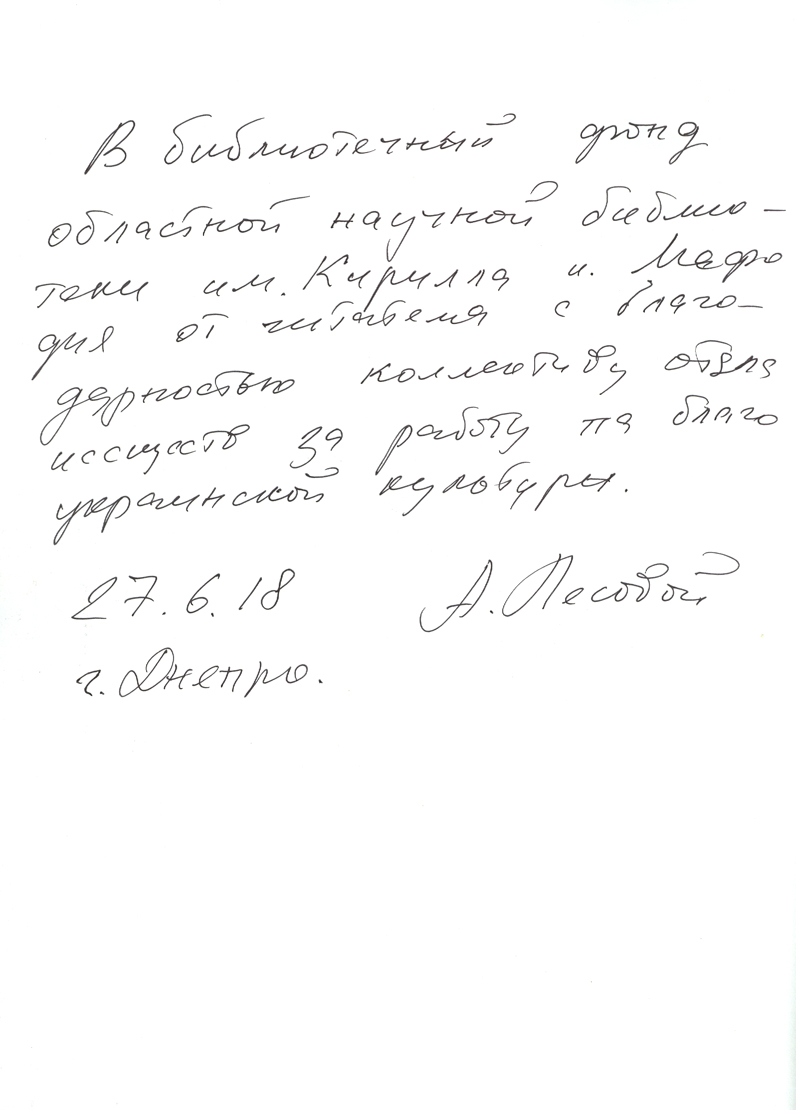 В библиотечный фонд
областной научной библио-
теки им. Кирилла и. Мефо
дия от читателя с благо-
дарностью коллективу отдела
исскуств за работу на благо
украинской культуры.
27.6.18 А. Лесовой
г. Днепро.